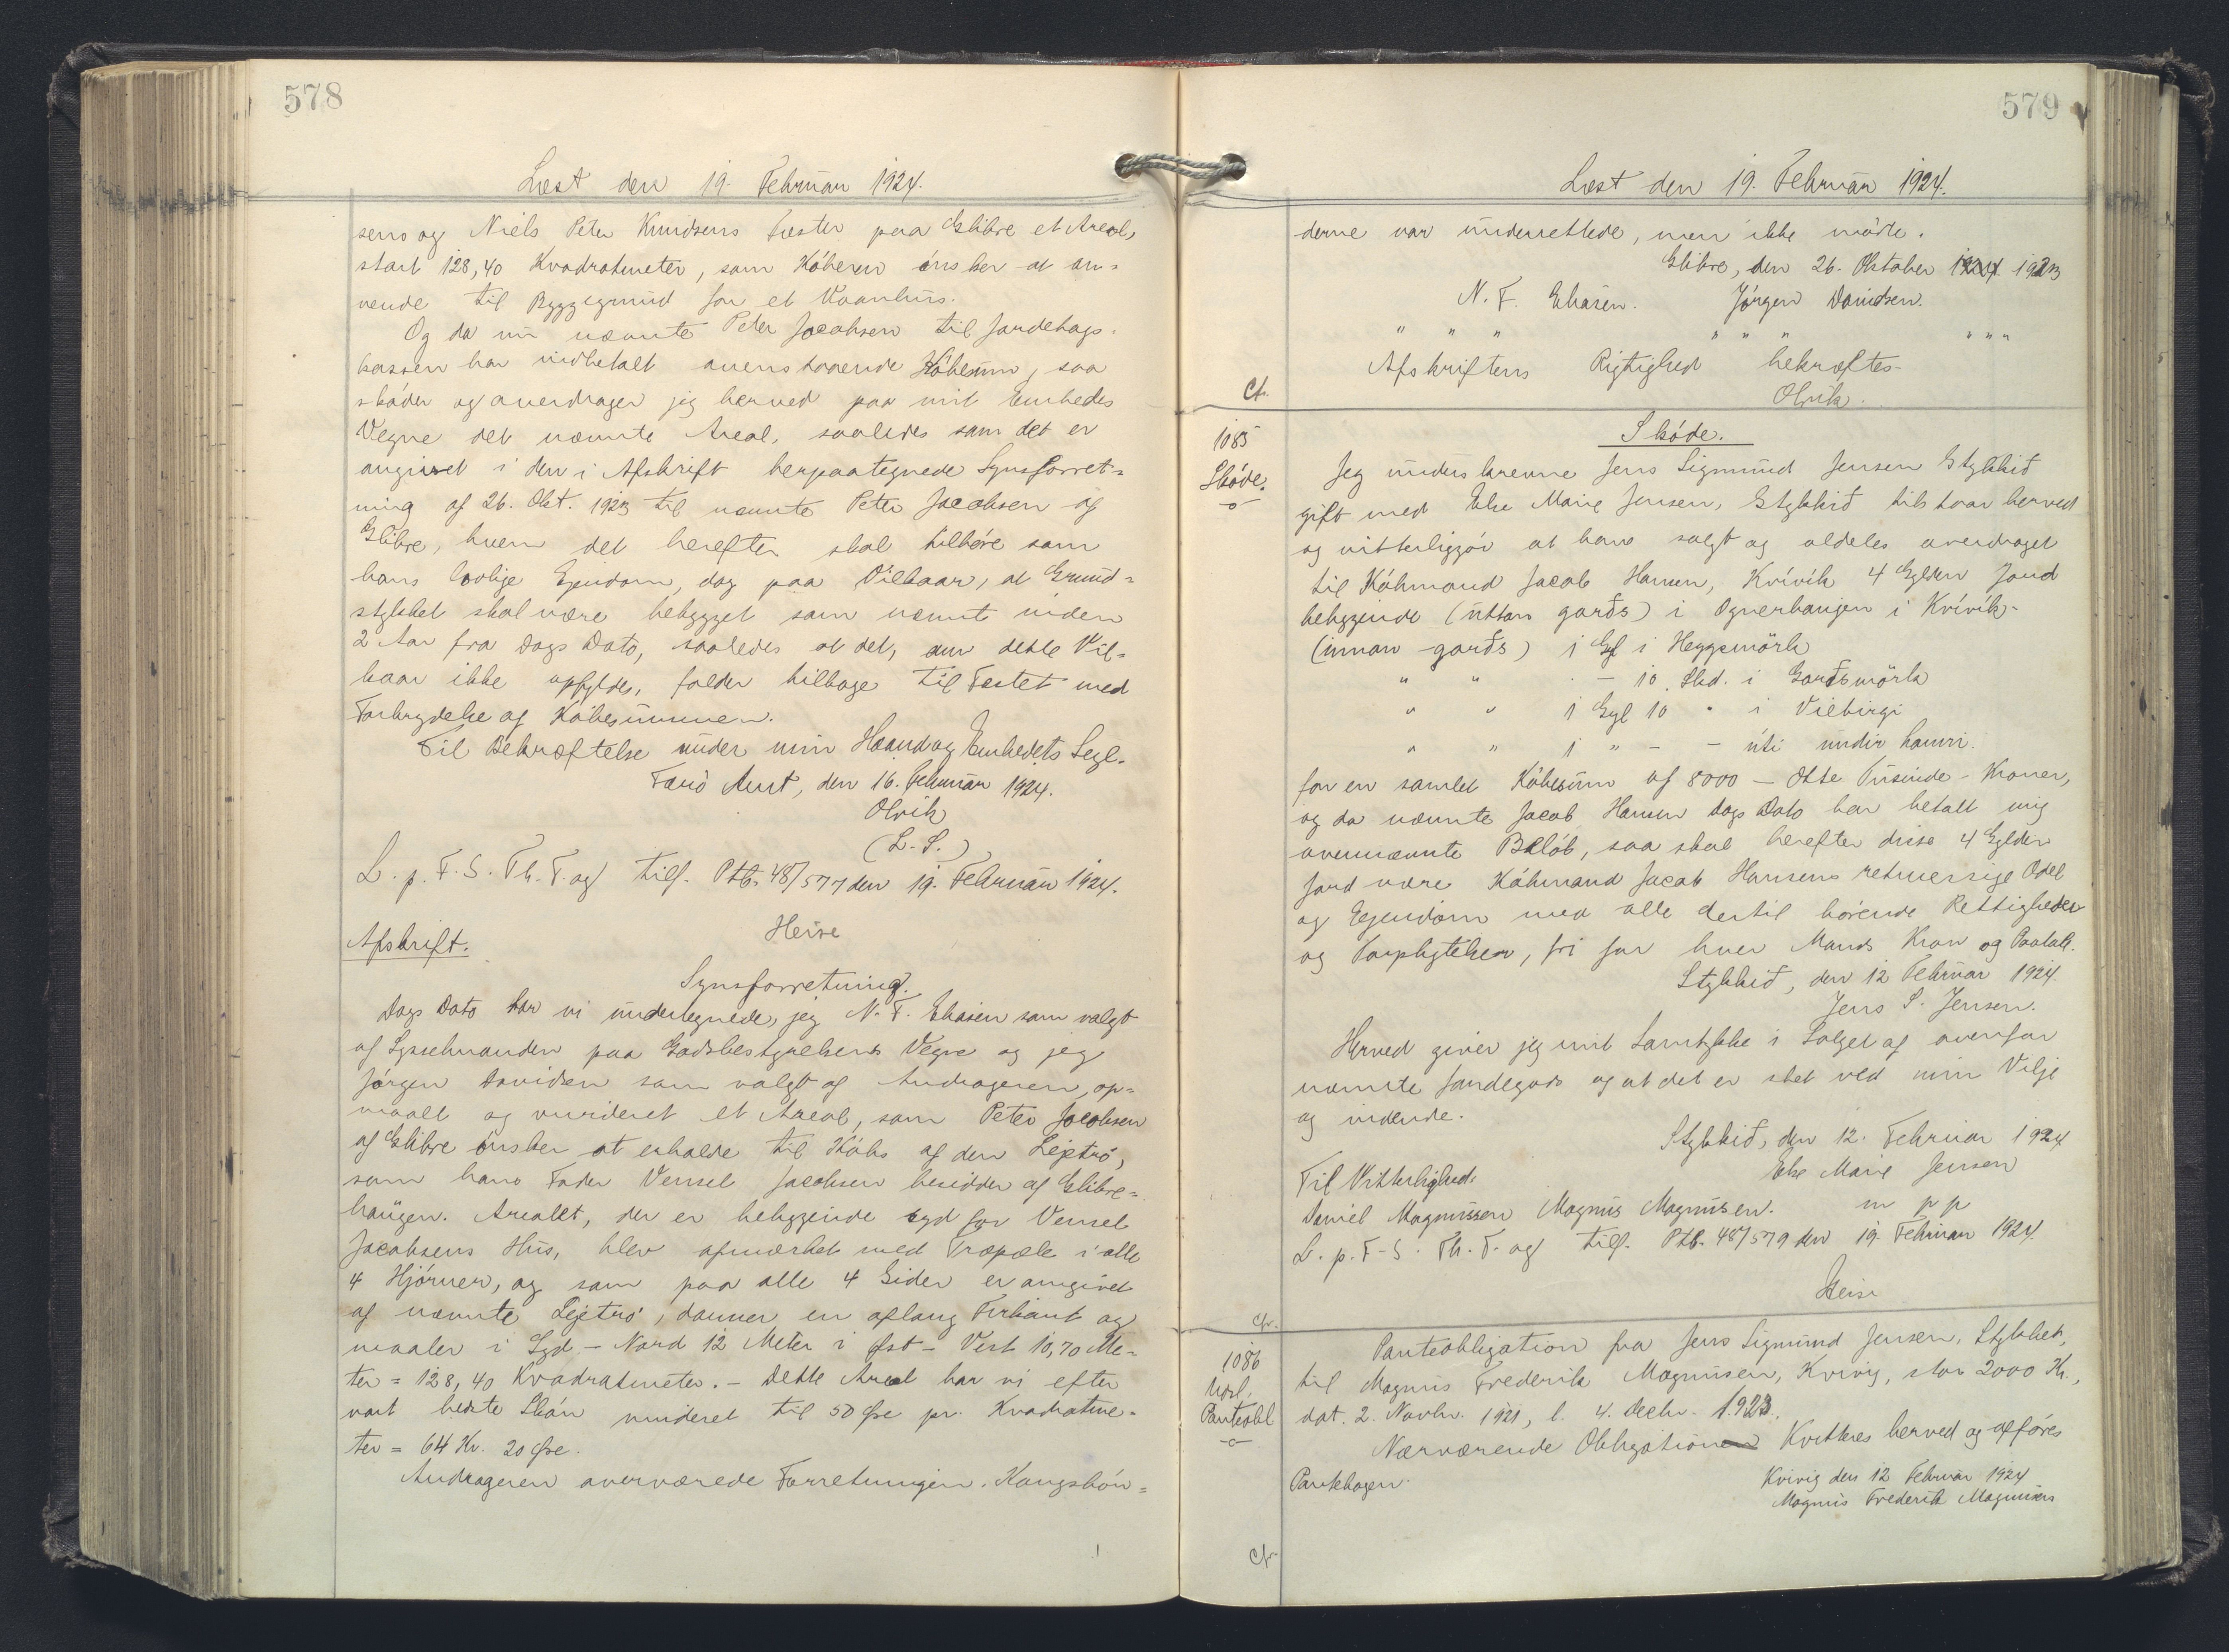 578
Læst den 19. Februar 1924.
sens og Niels Peter Knudsens Fæster paa Glibre et Areal,
stort 128,40 Kvadratmeter, som Køberen ønsker at an-
vende til Byggegrund for et Vaanhus.
Og da nu nævnte Peter Jacobsen til Jordebogs-
kassen har indbetalt ovenstaaende Købesum, saa
skøder og overdrager jeg herved paa mit Embedes
Vegne det nævnte Areal, saaledes som det er
angivet i den i Afskrift herpaategnede Synsforret-
ning af 26. Okt. 1923 til nævnte Peter Jacobsen af
Glibre, hvem det herefter skal tilhøre som
hans lovlige Ejendom, dog paa Vilkaar, at Grund-
stykket skal være bebygget som nævnt inden
2 Aar fra Dags Dato, saaledes at det, om dette Vil-
kaar ikke opfyldes, falder tilbage til Fæstet med
Fortrydelse af Købesummen.
Til Bekræftelse under min Haand og Embedets Segl.
Færø Amt, den 16. Februar 1924.
Olrik
(L. S.)
L. p. F. S. Th. T. og tilf. Ptb. 48/577 den 19. Februar 1924.
Heise
Afskrift.
Synsforretning.
Dags Dato har vi undertegnede, jeg N. F. Eliasen som valgt
af Sysselmanden paa Godsbestyrelsens Vegne og jeg
Jørgen Davidsen som valgt af Andrageren, op-
maalt og vurderet et Areal, som Peter Jacobsen
af Glibre ønsker at erholde til Købs af den Lejetrø,
som hans Fader Vensel Jacobsen besidder af Glibre-
haugen. Arealet, der er beliggende Syd for Vensel
Jacobsens Hus, blev afmærket med Træpæle i alle
4 Hjørner, og som paa alle 4 Sider er omgivet
af nævnte Lejetrø, danner en aflang Firkant og
maaler i Syd - Nord 12 Meter i Øst - Vest 10,70 Me-
ter = 128,40 Kvadratmeter. - Dette Areal har vi efter
vort bedste Skøn vurderet til 50 Øre pr. Kvadratme-
ter = 64 Kr. 20 Øre.
Andrageren overværede Forretningen. Kongsbøn-
579
Læst den 19. Februar 1924.
derne var underrettede, men ikke mødte.
Glibre, den 26. Oktober 1924 1923
N. F. Eliasen. Jørgen Davidsen.
" " " " " " " " "
Afskriftens Rigtighed bekræftes
Olrik.
Cf.
Skøde.
1085
Skøde.
Jeg underskrevne Jens Sigmund Jensen Stykkið
gift med Else Marie Jensen, Stykkið tilstaar herved
og vitterliggør at have solgt og aldeles overdraget
til Købmand Jacob Hansen, Kvívík 4 Gylden Jord
beliggende (uttan garðs) i Ognerhaugen i Kvívík-
(innan garðs) 1 Gyl i Heggsmörk
" " - 10 Skd. i Garðsmörk
" " 1 Gyl 10 " i Viebirgi
" " 1 " - - úti undir hamri.
for en samlet Købesum af 8000 - Otte Tusinde - Kroner,
og da nævnte Jacob Hansen Dags Dato har betalt mig
ovennævnte Beløb, saa skal herefter disse 4 Gylden
Jord være Købmand Jacob Hansens retmæssige Odel
og Ejendom med alle dertil hørende Rettigheder
og Forpligtelser, fri for hver Mands Krav og Paatale.
Stykkið, den 12 Februar 1924.
Jens S. Jensen.
Herved giver jeg mit Samtykke i Salget af ovenfor
nævnte Jordegods og at det er sket ved min Vilje
og vidende.
Stykkið, den 12. Februar 1924
Else Marie Jensen
Til Vitterlighed.
Daniel Magnussen Magnus Magnusen. m p p
L. p. F. S. Th. T. og tilf. Ptb. 48/579 den 19. Februar 1924.
Heise
Cfr.
1086
Udsl.
Panteobl
Panteobligation fra Jens Sigmund Jensen, Stykket,
til Magnus Frederik Magnusen, Kvivig, stor 2000 Kr.,
dat. 2. Novbr. 1921, l. 4. Decbr. 1923.
Nærværende Obligation Kvitteres herved og afføres
Pantebogen.
Kvivig den 12 Februar 1924
Magnus Frederik Magnusen
Cfr.